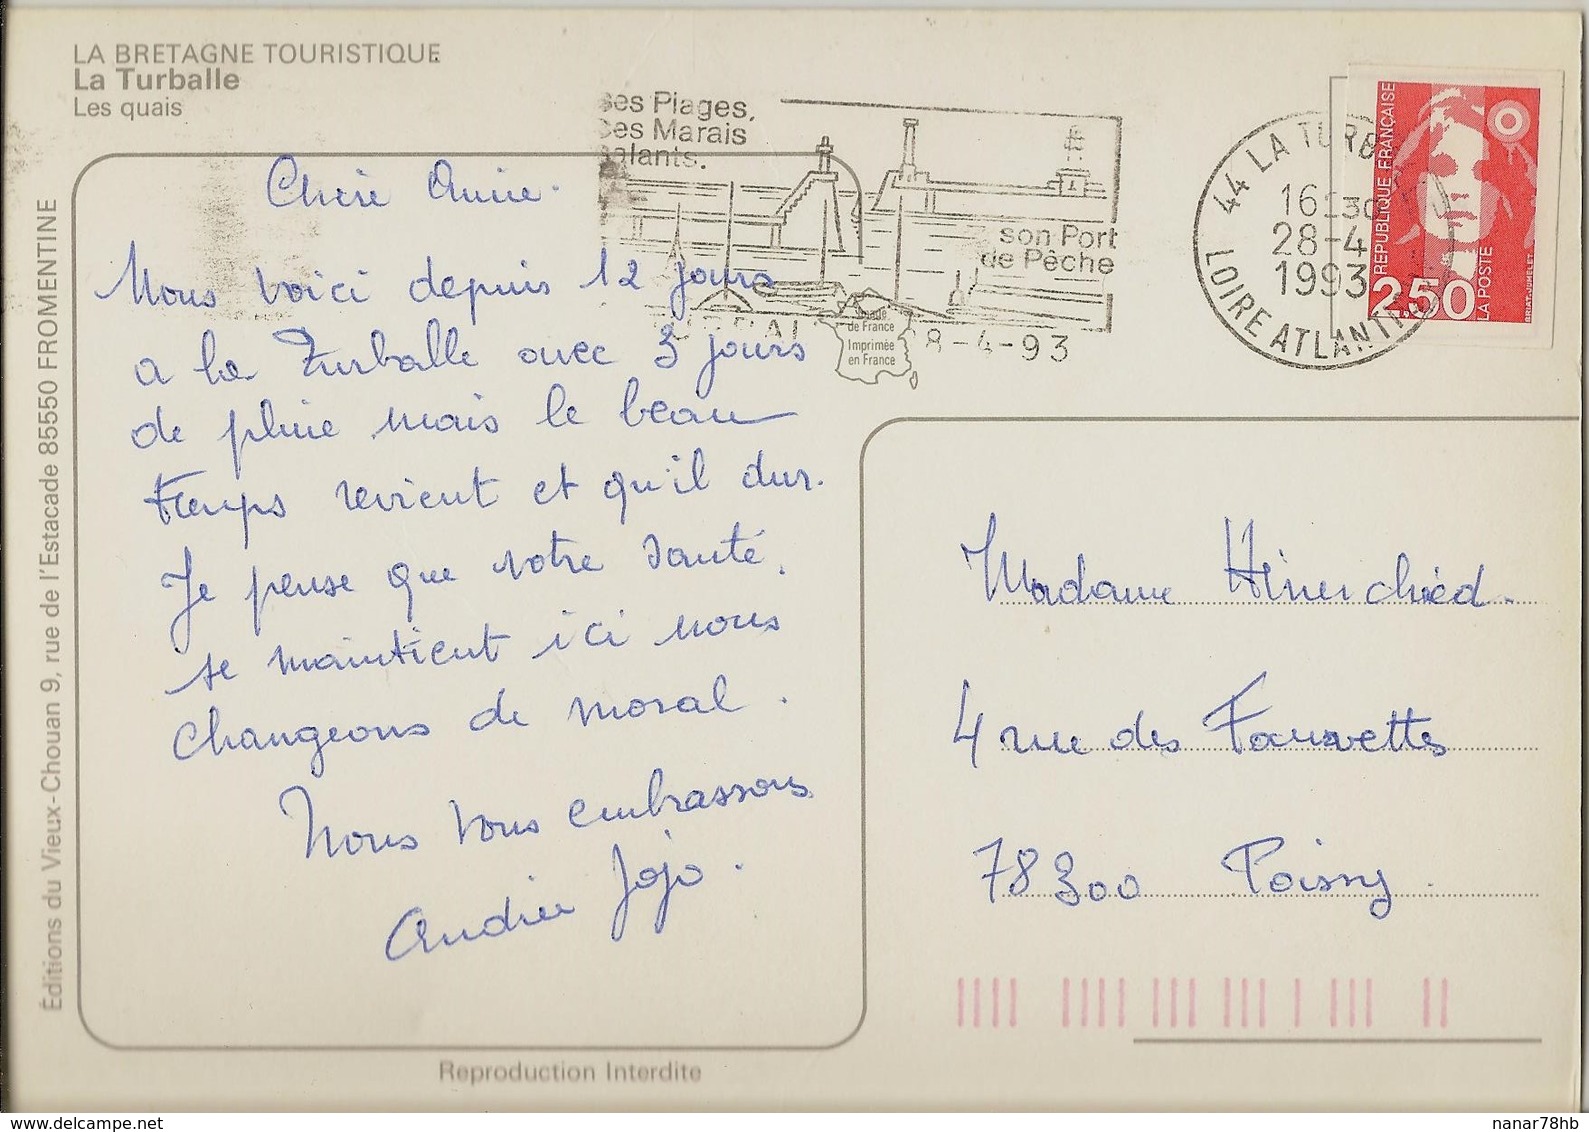 LA BRETAGNE TOURISTIQUE
La Turballe
Les quais
ses Plages,
Ses Marais
Salants.
son Port
de Pêche
28-4-93
44 LA TURB
16-30
28-4
1993
LOIRE ATLANTI
REPUBLIQUE FRANÇAISE
2,50
LA POSTE
BRIAT-JUMELET
Made
de France
Imprimée
en France
Chère Annie.
Nous voici depuis 12 jours
a la Turballe avec 3 jours
de pluie mais le beau
temps revient et qu'il dur.
Je pense que votre santé,
se maintient ici nous
changeons de moral.
Nous vous embrassons
Andrée Jojo.
Madame
4 rue des Fauvettes
78300 Poissy.
Éditions du Vieux-Chouan 9, rue de l'Estacade 85550 FROMENTINE
Reproduction Interdite
www.delcampe.net
nanar78hb